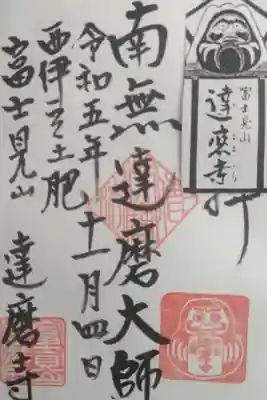 富士見山
達磨寺
南無達磨大師
令和五年十一月四日
西伊豆土肥
富士見山 達磨寺